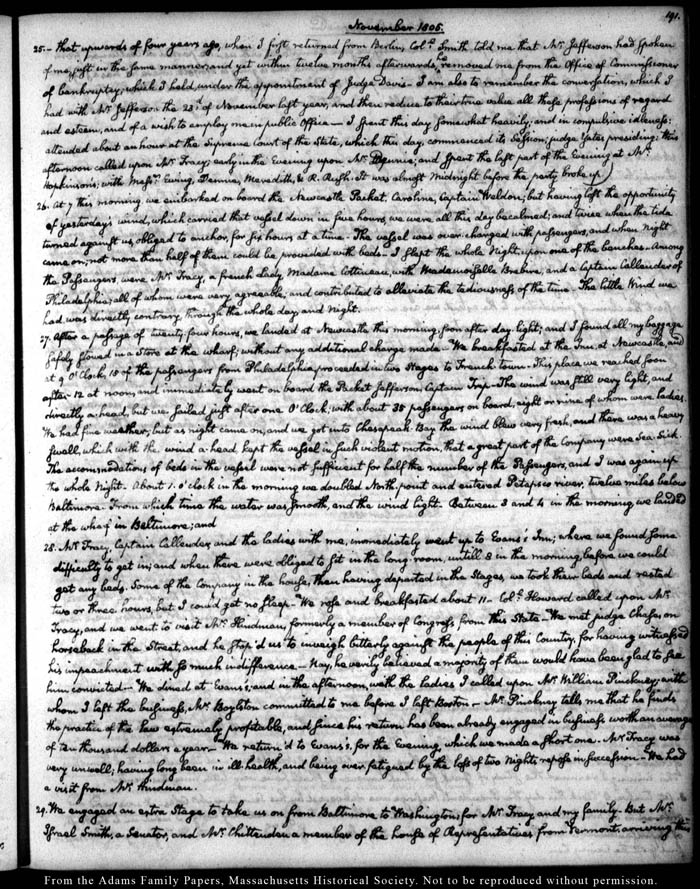 191.
November 1805.
25.- that upwards of four years ago, when I first returned from Berlin, Coll. Smith told me that Mr. Jefferson had spoken
of me, just in the same manner, and yet within twelve months afterwards, he removed me from the Office of Commissioner
of bankruptcy, which I held, under the appointment of Judge Davis- I am also to remember the conversation, which I
had with Mr. Jefferson the 23d. of November last year, and then reduce to their true value all these professions of regard
and esteem, and of a wish to employ me in public Office- I spent this day somewhat heavily, and in compulsive idleness:
attended about an hour at the Supreme Court of the State, which this day, commenced its Session; judge Yates presiding: this
afternoon called upon Mr. Tracy; early in the Evening upon Mr. and spent the last part of the Evening at Mr.
Hopkinson's; with Messrs. Ewing, Dennie, Meredith, & R. Rush. It was almost Midnight before the party broke up
26. At 7 this morning, we embarked on board the Newcastle Packet, Caroline, Captain Weldon; but having lost the opportunity
of yesterday's wind, which carried that vessel down in five hours, we were all this day becalmed; and twice when the tide
turned against us obliged to anchor, for six hours at a time- The vessel was over-charged with passengers, and when Night
came on, not more than half of them could be provided with beds- I slept the whole Night, upon one of the benches. Among
the Passengers, were Mr. Tracy, a french Lady Madame Cottineau, with Mademoiselle and a Captain Callender of
Philadelphia; all of whom were very agreeable, and contributed to alleviate the tediousness of the time. The little Wind we
had, was directly contrary, through the whole day and Night.
27. After a passage of twenty-four hours, we landed at Newcastle this morning, soon after day-light; and I found all my baggage
safely stowed in a Store at the wharf; without any additional charge made- We breakfasted at the Inn, at Newcastle, and
at 9 O'Clock, 18 of the passengers from Philadelphia, proceeded in two Stages to French-town- This place we reached soon
after 12 at noon, and immediately went on board the Packet Jefferson, Captain Trip. The wind was still very light, and
directly a-head, but we sailed just after one O'Clock, with about 35 passengers on board, eight or nine of whom were ladies.
We had fine weather; but as night came on, and we got into Chesapeak-Bay the wind blew very fresh, and there was a heavy
swell, which with the wind a-head, kept the vessel in such violent motion, that a great part of the Company were Sea-Sick.
The accommodations of beds in the vessel were not sufficient for half the number of the Passengers, and I was again up
the whole Night. About 1. o'clock in the morning we doubled North point and entered Patapsco river, twelve miles below
Baltimore. From which time the water was smooth, and the wind light. Between 3 and 4 in the morning, we landed
at the wharf in Baltimore; and
28. Mr. Tracy, Captain Callender, and the ladies with me, immediately went up to Evans's Inn; where we found some
difficulty to get in; and when there were obliged to sit in the long-room, untill 8 in the morning, before we could
get any beds. Some of the Company in the house, then having departed in the Stages, we took their beds and rested
two or three hours, but I could get no sleep.- We rose and breakfasted about 11. Coll. Howard called upon Mr.
Tracy, and we went to visit Mr. Hindman, formerly a member of Congress from this State- We met judge Chase, on
horseback in the Street, and he stop'd us to inveigh bitterly against the people of this Country, for having witnessed
his impeachment with so much indifference- Nay, he verily believed a majority of them would have been glad to see
him convicted- We dined at Evans's, and in the afternoon, with the ladies I called upon Mr. William Pinckney; with
whom I left the business, Mr. Boylston committed to me before I left Boston- Mr. Pinckney tells me that he finds
the practice of the law extremely profitable, and since his return has been already engaged in business worth an average
of ten thousand dollars a year- We return'd to Evans's, for the Evening, which we made a short one. Mr. Tracy was
very unwell; having long been in ill-health, and being over-fatigued by the loss of two Night's repose in succession- We had
a visit from Mr. Hindman.
29. We engaged an extra Stage to take us on from Baltimore to Washington; for Mr. Tracy, and my family. But Mr.
Israel Smith, a Senator, and Mr. Chittenden a member of the house of Representatives from Vermont, arriving this
From the Adams Family Papers, Massachusetts Historical Society. Not to be reproduced without permission.